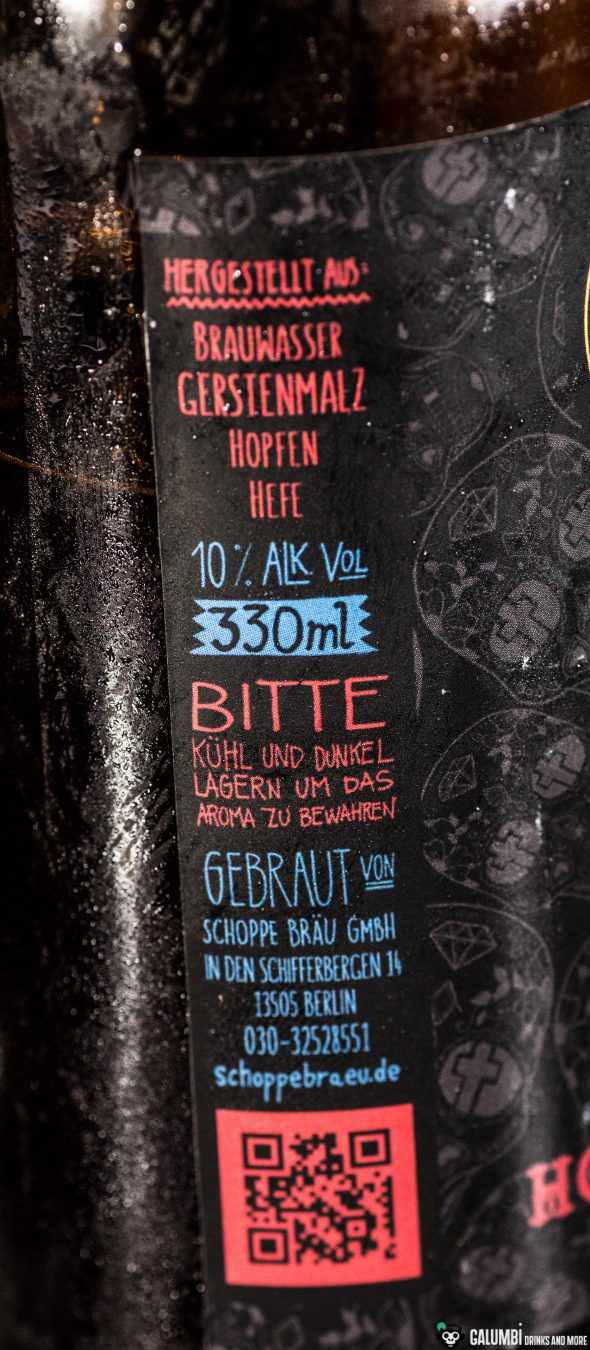 HERGESTELLT AUS:
BRAUWASSER
GERSTENMALZ
HOPFEN
HEFE
10% ALK. VOL
330ml
BITTE
KÜHL UND DUNKEL
LAGERN UM DAS
AROMA ZU BEWAHREN
GEBRAUT VON
SCHOPPE BRÄU GMBH
IN DEN SCHIFFERBERGEN 14
13505 BERLIN
030-32528551
schoppebraeu.de
GALUMBI DRINKS AND MORE